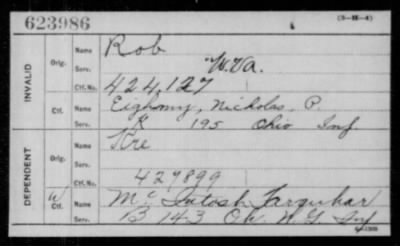 623986
(3-16-4)
INVALID
Orig.
Name Rob
Serv. W.Va.
Ctf. No. 424,127
Ctf.
Name Eighmy, Nicholas, P.
Serv. K 195 Ohio Inf.
DEPENDENT
Orig.
Name Kre
Serv.
Ctf. No. 427899
W
Ctf.
Name McIntosh Farquhar
Serv. B 143 Oh. N.G. Inf